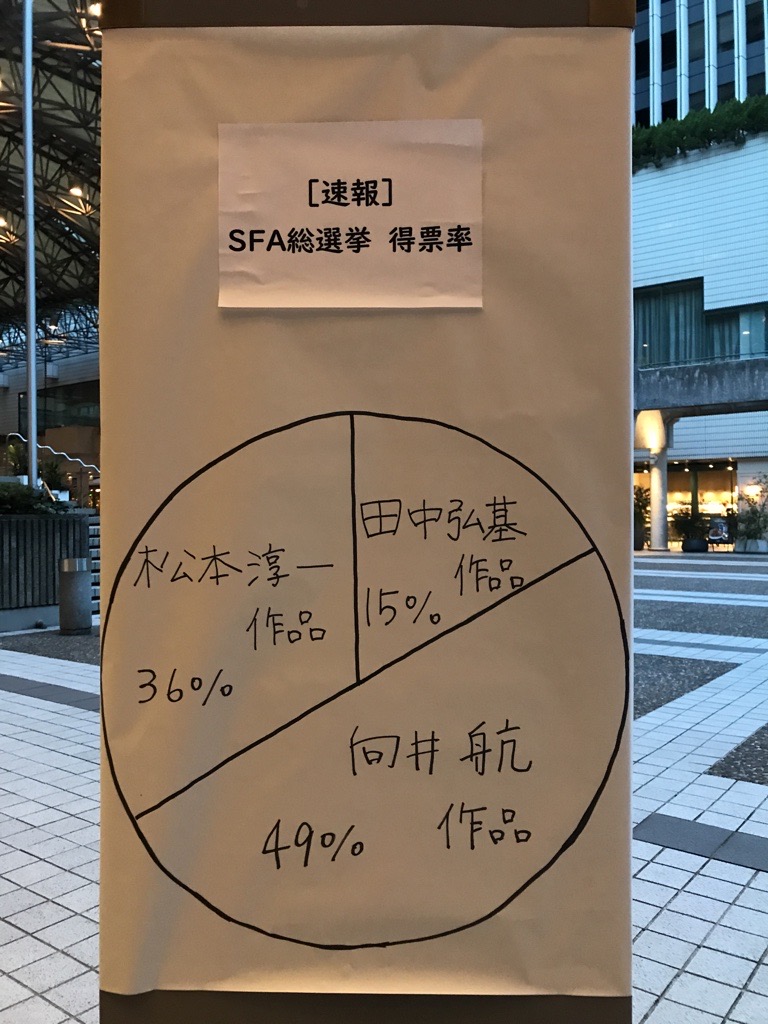 ［速報］
SFA総選挙 得票率
田中弘基
作品
15%
松本淳一
作品
36%
向井 航
作品
49%